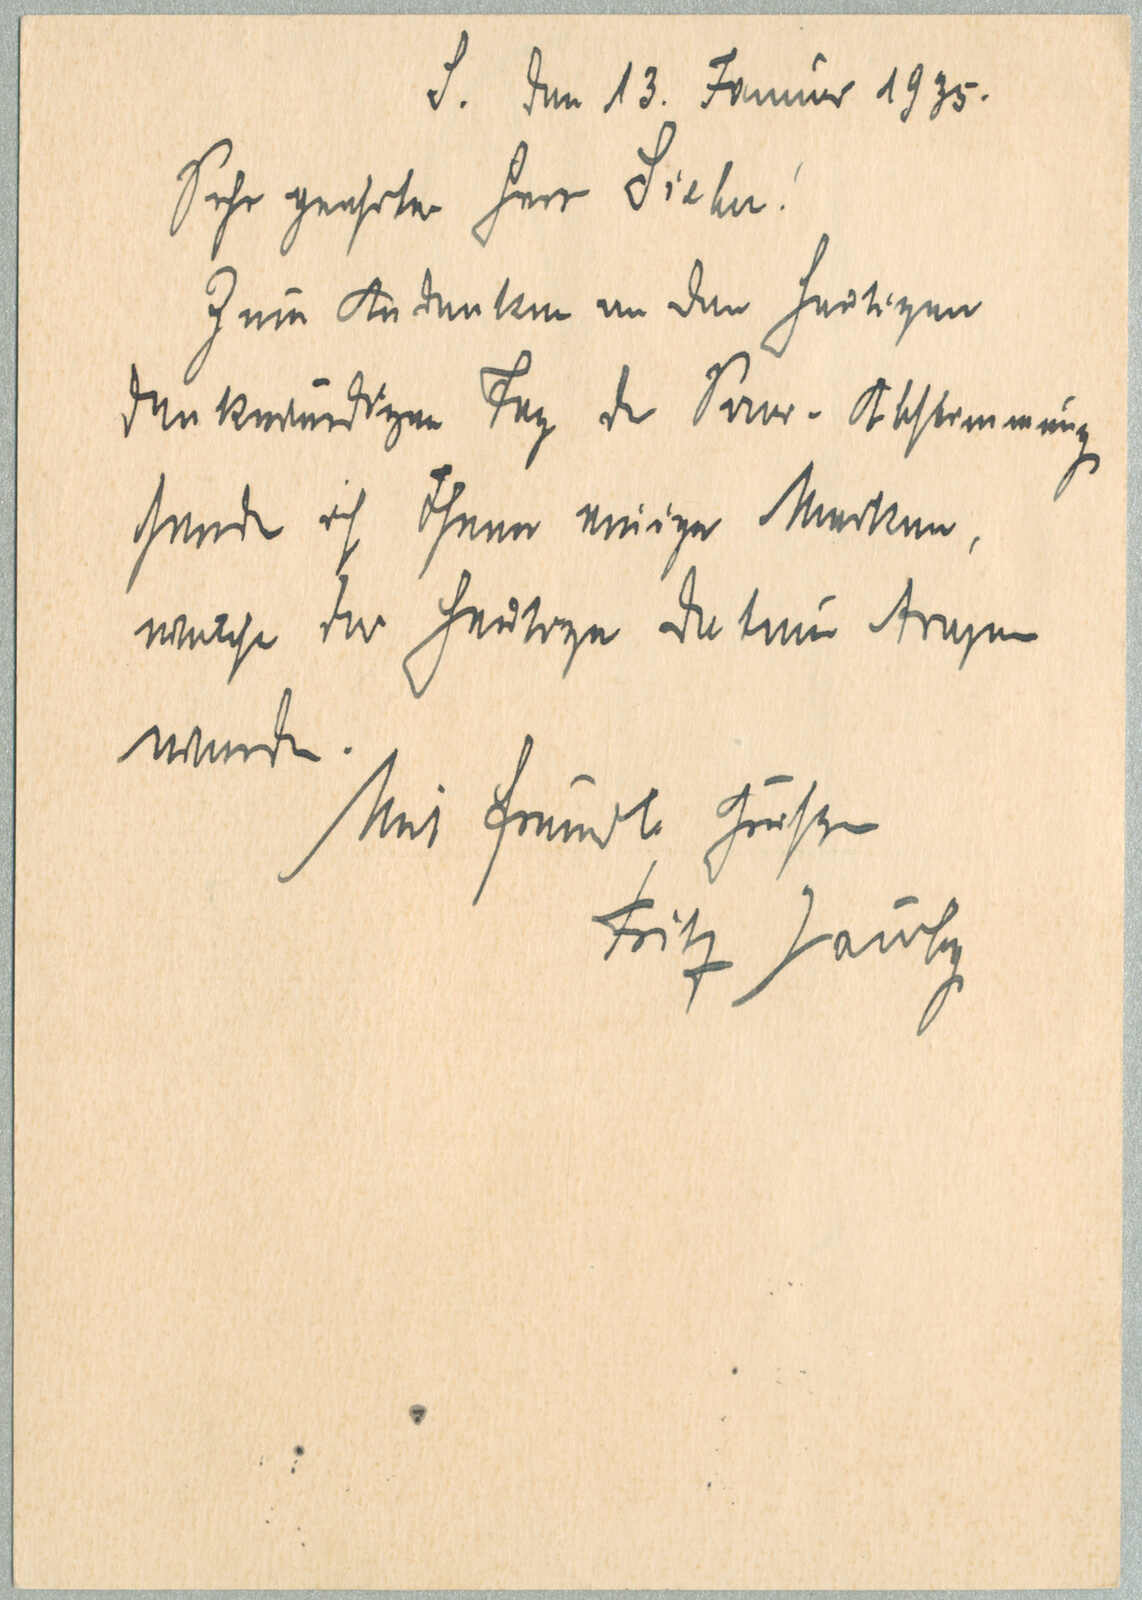 S. den 13. Januar 1935.
Sehr geehrter Herr
Zum Andenken an den heutigen
denkwürdigen Tag der Saar-Abstimmung
sende ich Ihnen einige Marken,
welche das heutige Datum tragen
werden.
Mit freundl. Grüßen
Fritz